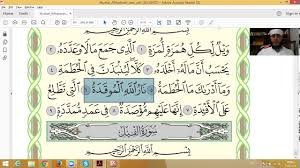 بِسْمِ اللَّهِ الرَّحْمَٰنِ الرَّحِيمِ
وَيْلٌ لِّكُلِّ هُمَزَةٍ لُّمَزَةٍ ١ ٱلَّذِى جَمَعَ مَالًا وَعَدَّدَهُۥ ٢
يَحْسَبُ أَنَّ مَالَهُۥٓ أَخْلَدَهُۥ ٣ كَلَّا لَيُنۢبَذَنَّ فِى ٱلْحُطَمَةِ ٤
وَمَآ أَدْرَىٰكَ مَا ٱلْحُطَمَةُ ٥ نَارُ ٱللَّهِ ٱلْمُوقَدَةُ ٦ ٱلَّتِى تَطَّلِعُ
عَلَى ٱلْأَفْـِٔدَةِ ٧ إِنَّهَا عَلَيْهِم مُّؤْصَدَةٌ ٨ فِى عَمَدٍ مُّمَدَّدَةٍۭ ٩
سُورَةُ الْفِيلِ
بِسْمِ اللَّهِ الرَّحْمَٰنِ الرَّحِيمِ